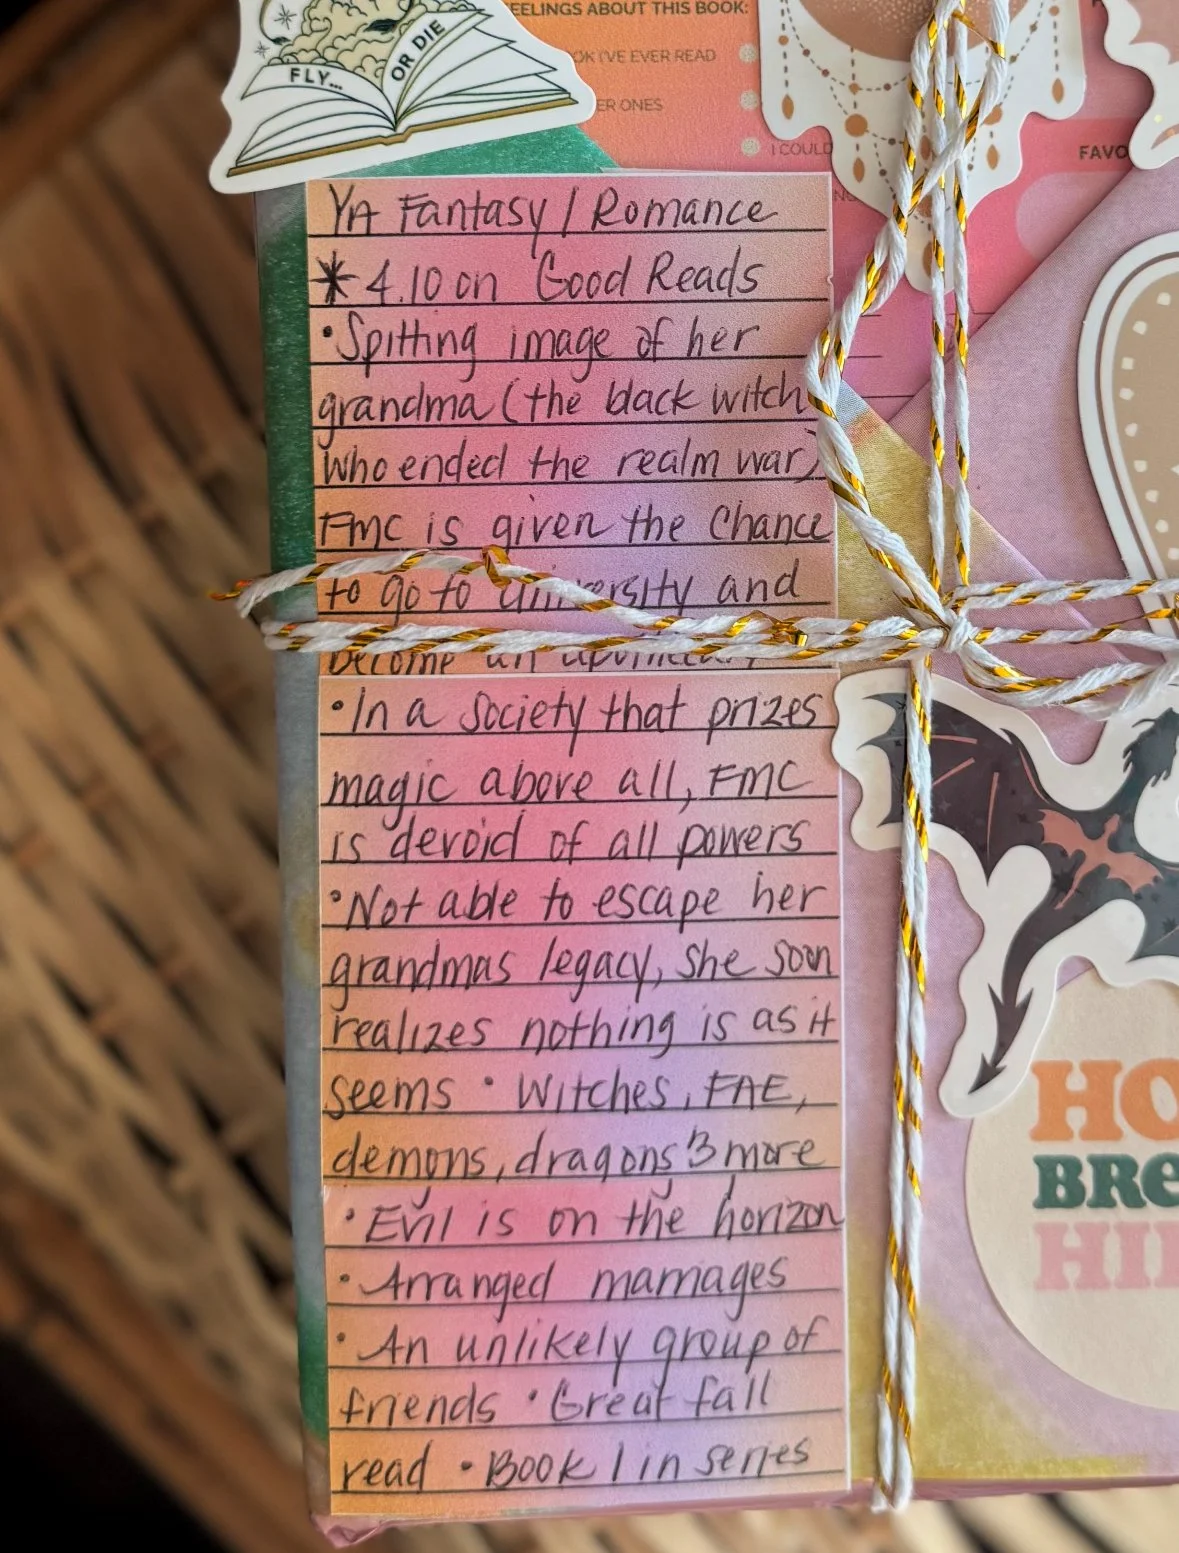 EELINGS ABOUT THIS BOOK:
FLY...
OR DIE
OK I'VE EVER READ
ER ONES
I COULD
FAVO
YA Fantasy / Romance
* 4.10 on Good Reads
• Spitting image of her
grandma (the black witch
who ended the realm war)
FMC is given the chance
to go to university and
become an
• In a society that prizes
magic above all, FMC
is devoid of all powers
• Not able to escape her
grandmas legacy, she soon
realizes nothing is as it
seems • Witches, FAE,
demons, dragons & more
• Evil is on the horizon
• Arranged marriages
• An unlikely group of
friends • Great fall
read • Book 1 in series
HO
BRE
HI